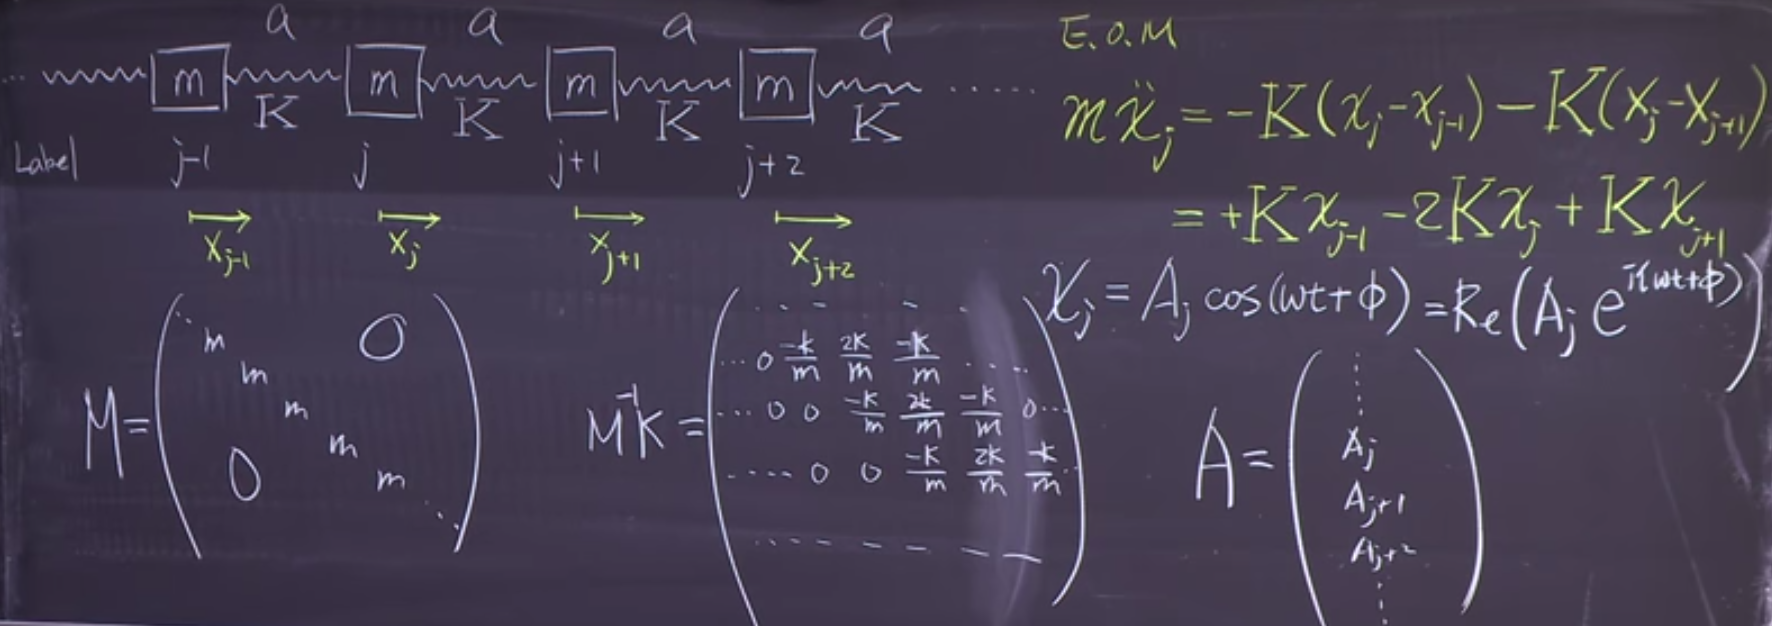 a a a a
... m m m m .....
K K K K
Label j-1 j j+1 j+2
x_{j-1} x_j x_{j+1} x_{j+2}
E.O.M
mẍ_j = -K(x_j - x_{j-1}) - K(x_j - x_{j+1})
= +Kx_{j-1} - 2Kx_j + Kx_{j+1}
x_j = A_j cos(ωt+ϕ) = Re(A_j e^{i(ωt+ϕ)})
M = ( ⋱ m m m m m ⋱ 0 0 )
M^{-1}K = ( ... 0 -k/m 2k/m -k/m ....
... 0 0 -k/m 2k/m -k/m 0 ...
.... 0 0 -k/m 2k/m -k/m )
A = ( ⋮
A_j
A_{j+1}
A_{j+2}
⋮ )